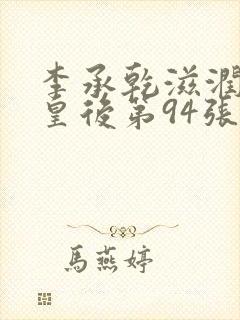 李承乾滋潤
皇後第94張
馬燕婷